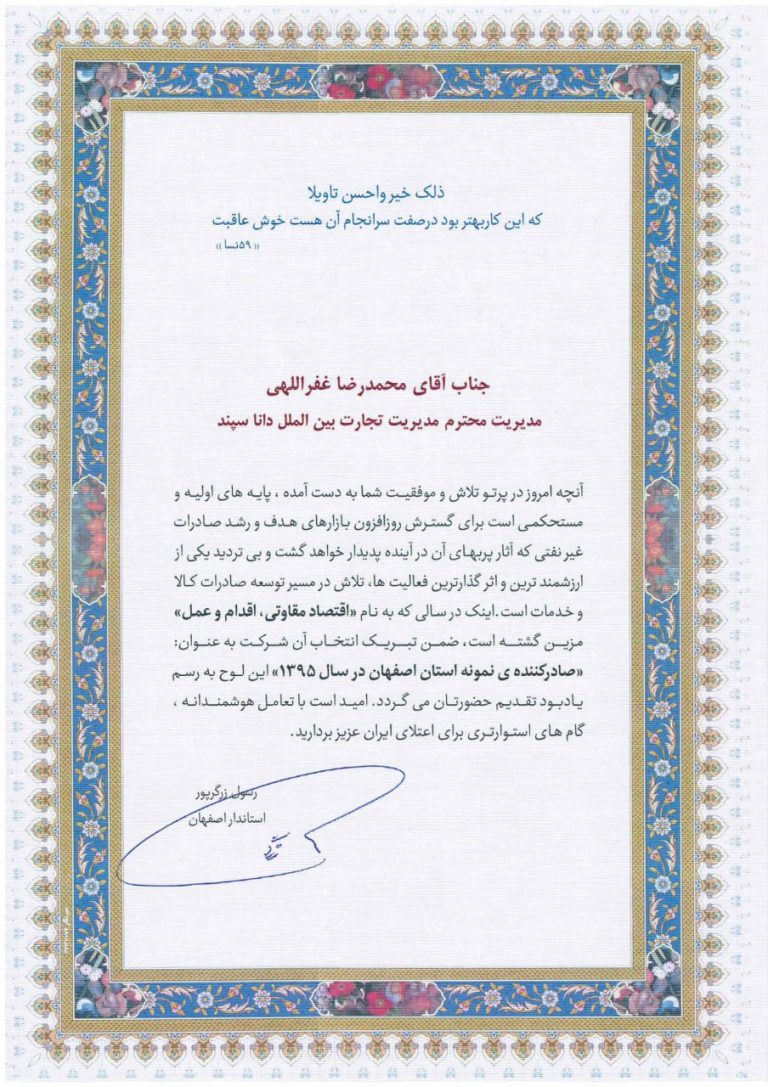 ذلک خیر واحسن تاویلا
که این کاربهتر بود درصفت سرانجام آن هست خوش عاقبت
«۵۹نسا»
جناب آقای محمدرضا غفراللهی
مدیریت محترم مدیریت تجارت بین الملل دانا سپند
آنچه امروز در پرتو تلاش و موفقیت شما به دست آمده ، پایه های اولیه و
مستحکمی است برای گسترش روزافزون بازارهای هدف و رشد صادرات
غیر نفتی که آثار پربهای آن در آینده پدیدار خواهد گشت و بی تردید یکی از
ارزشمند ترین و اثر گذارترین فعالیت ها، تلاش در مسیر توسعه صادرات کالا
و خدمات است.اینک در سالی که به نام «اقتصاد مقاوتی، اقدام و عمل»
مزین گشته است، ضمن تبریک انتخاب آن شرکت به عنوان:
«صادرکننده ی نمونه استان اصفهان در سال ۱۳۹۵» این لوح به رسم
یادبود تقدیم حضورتان می گردد. امید است با تعامل هوشمندانه ،
گام های استوارتری برای اعتلای ایران عزیز بردارید.
رسول زرگرپور
استاندار اصفهان